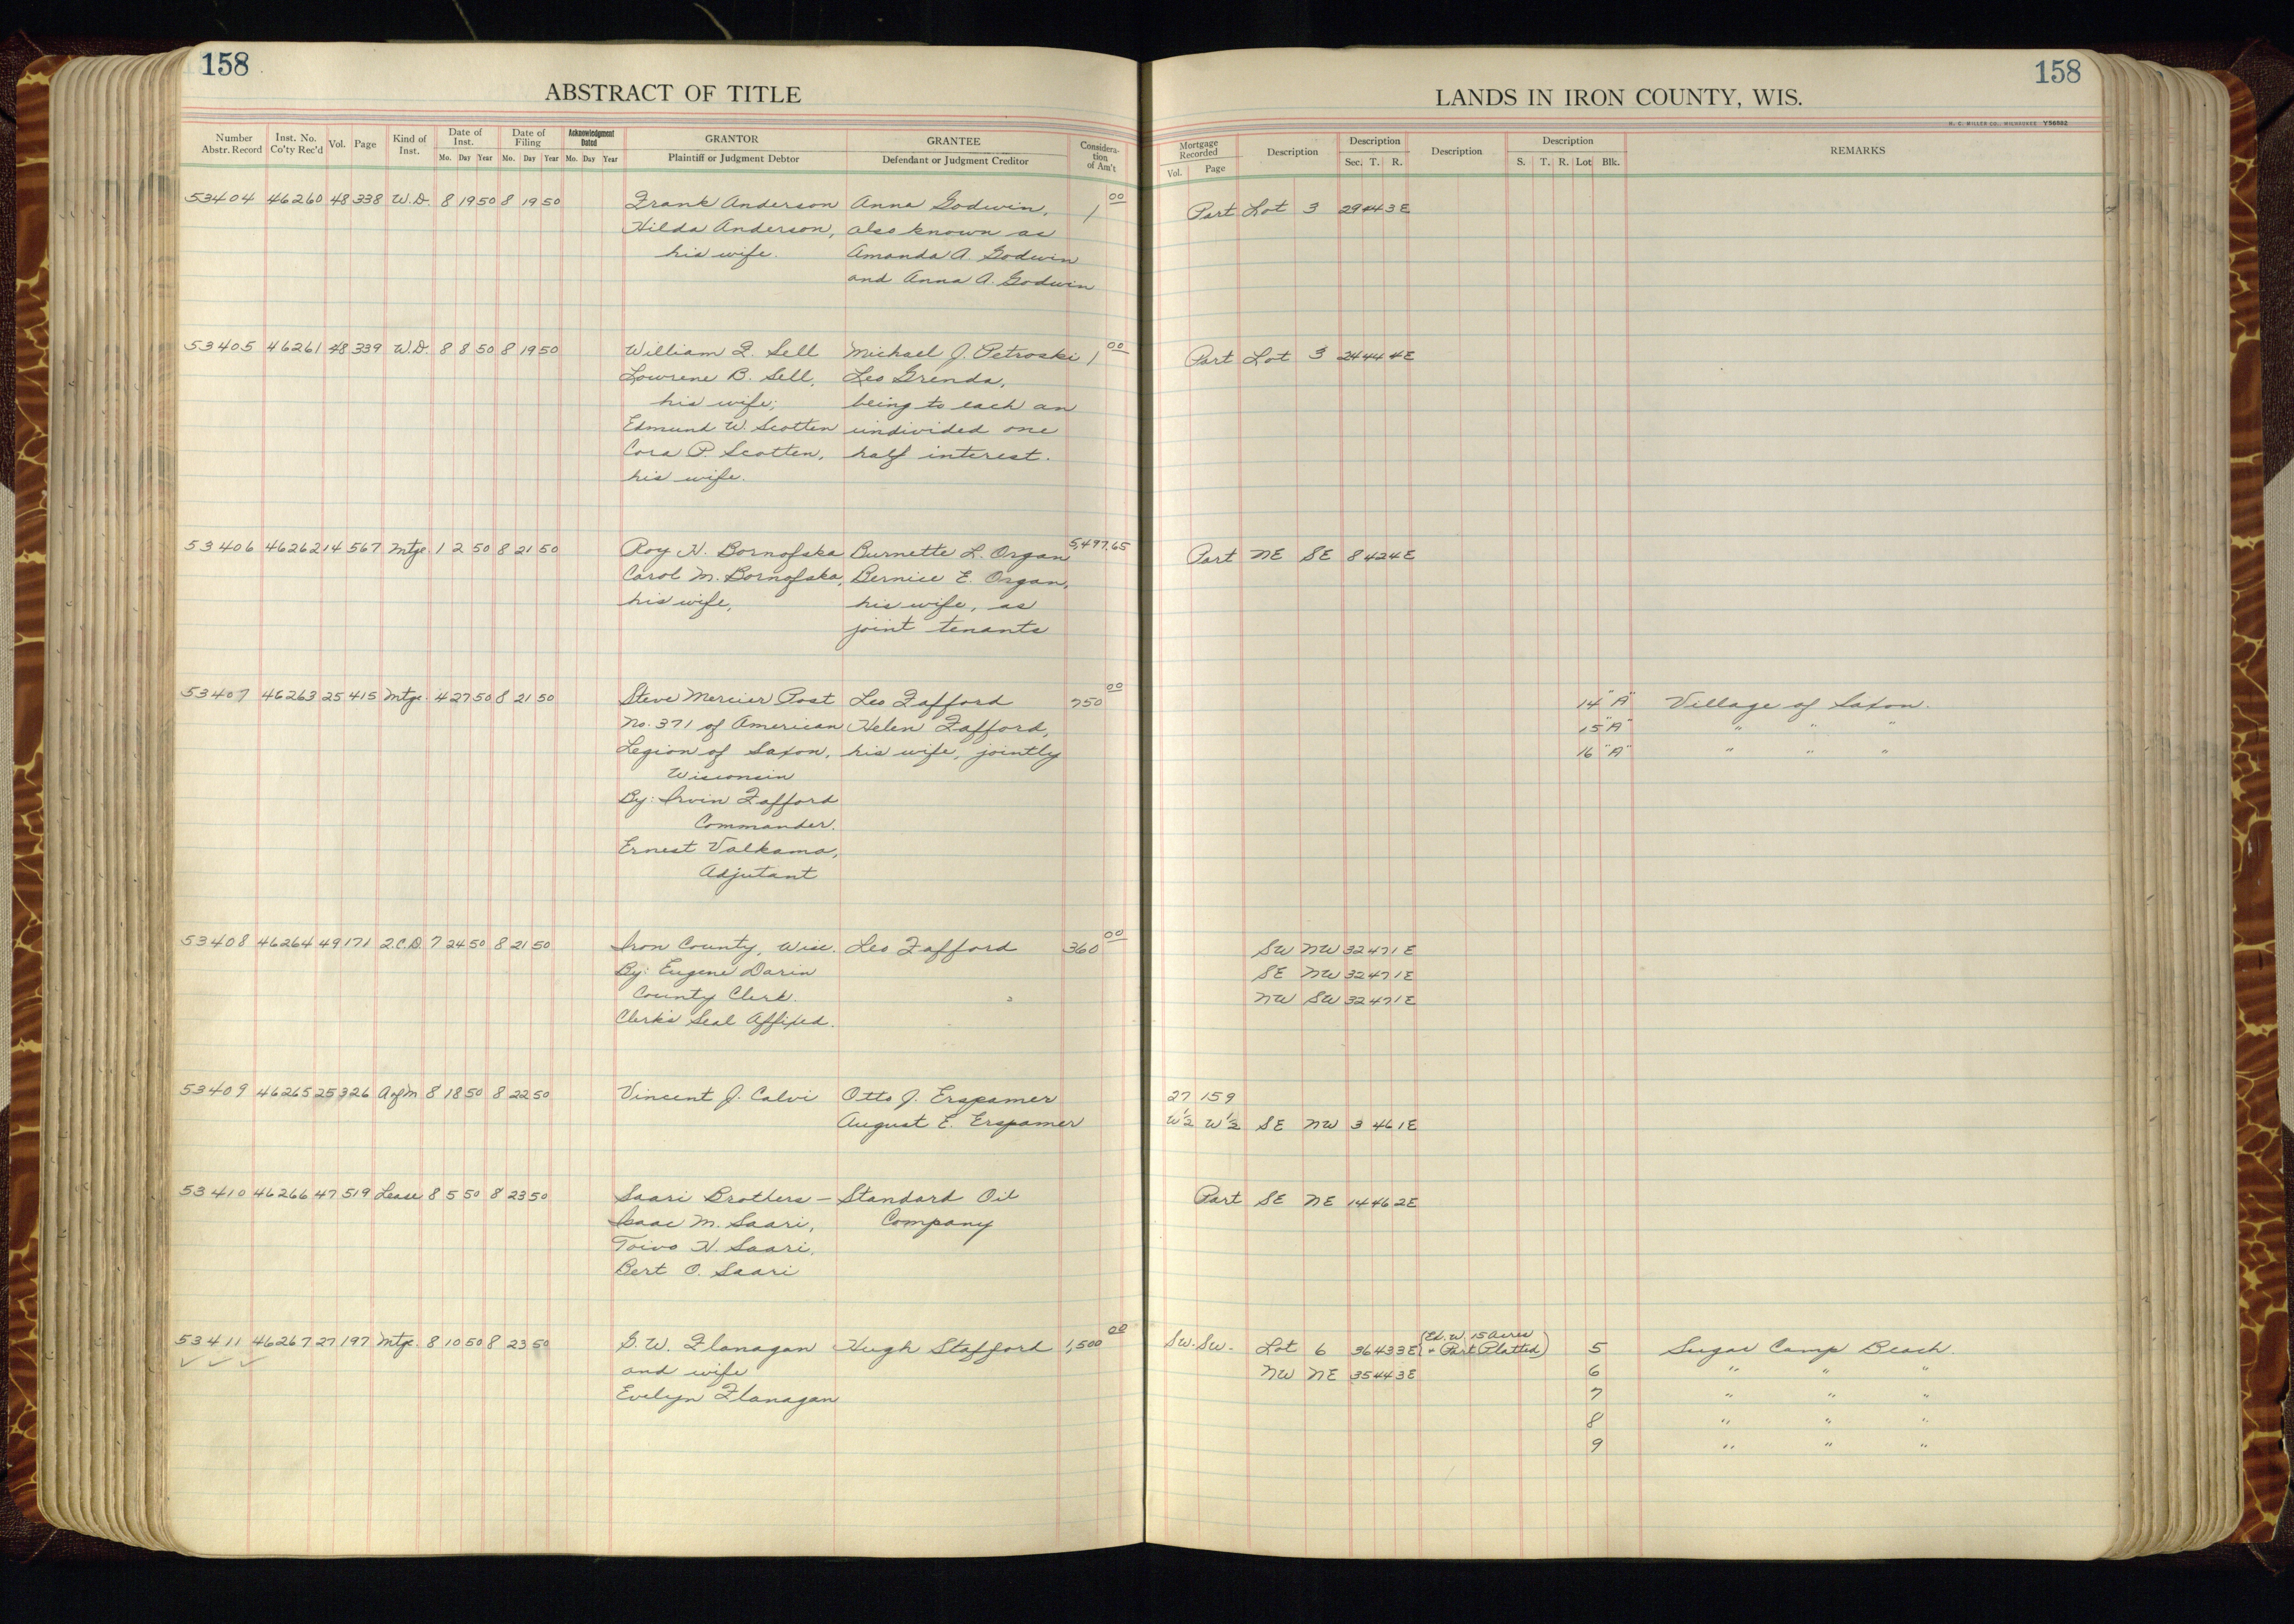 158
ABSTRACT OF TITLE
Number Abstr. Record | Inst. No. Co'ty Rec'd | Vol. | Page | Kind of Inst. | Date of Inst. Mo. Day Year | Date of Filing Mo. Day Year | Acknowledgment Dated Mo. Day Year | GRANTOR Plaintiff or Judgment Debtor | GRANTEE Defendant or Judgment Creditor | Consideration of Am't
53404 46260 48 338 W.D. 8 19 50 8 19 50 Frank Anderson Anna Godwin, 1 00
Hilda Anderson, also known as
his wife. Amanda A. Godwin
and Anna A. Godwin
53405 46261 48 339 W.D. 8 8 50 8 19 50 William F. Sell Michael J. Petroski 1 00
Lowrene B. Sell, Leo Grenda,
his wife; being to each an
Edmund W. Scotten undivided one
Cora P. Scotten, half interest.
his wife.
53406 46262 14 567 Mtge 1 2 50 8 21 50 Roy H. Bornofska Burnette L. Organ 5,497.65
Carol M. Bornofska, Bernice E. Organ,
his wife, his wife, as
joint tenants
53407 46263 25 415 Mtge. 4 27 50 8 21 50 Steve Mercier Post Leo Fafford 750 00
No. 371 of American Helen Fafford,
Legion of Saxon, his wife, jointly
Wisconsin
By: Irvin Fafford
Commander.
Ernest Valkama,
Adjutant
53408 46264 49 171 2.C.D. 7 24 50 8 21 50 Iron County, Wisc. Leo Fafford 360 00
By: Eugene Darin
County Clerk.
Clerk's Seal Affixed.
53409 46265 25 326 A of M 8 18 50 8 22 50 Vincent J. Calvi Otto J. Erspamer
August E. Erspamer
53410 46266 47 519 Lease 8 5 50 8 23 50 Saari Brothers — Standard Oil
Isaac M. Saari, Company
Toivo H. Saari,
Bert O. Saari
53411 46267 27 197 Mtge. 8 10 50 8 23 50 G. W. Flanagan Hugh Stafford 1,500 00
and wife
Evelyn Flanagan
158
LANDS IN IRON COUNTY, WIS.
H. C. MILLER CO., MILWAUKEE Y56582
Mortgage Recorded Vol. Page | Description | Description Sec. T. R. | Description | Description S. T. R. Lot Blk. | REMARKS
Part Lot 3 29 44 3E
Part Lot 3 24 44 4E
Part NE SE 8 42 4E
14 "A" Village of Saxon.
15 "A" " " "
16 "A" " " "
SW NW 32 47 1E
SE NW 32 47 1E
NW SW 32 47 1E
27 159
W½ W½ SE NW 3 46 1E
Part SE NE 14 46 2E
SW. SW. Lot 6 36 43 3E (Ex. W. 15 Acres + Part Platted) 5 Sugar Camp Beach.
NW NE 35 44 3E 6 " " "
7 " " "
8 " " "
9 " " "